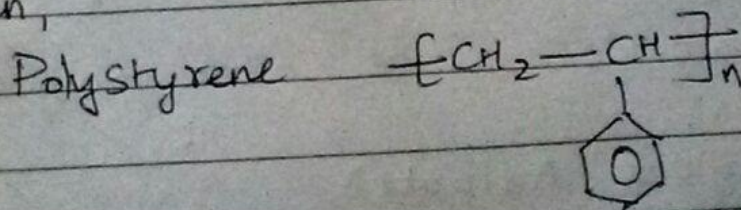 Polystyrene [CH2-CH]n